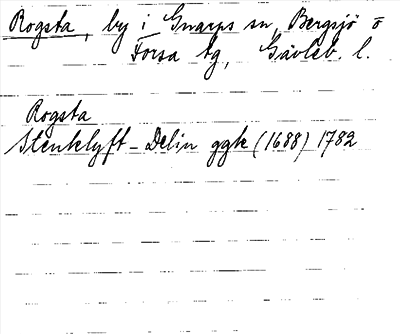 Rogsta, by i Gnarps sn, Bergsjö o
Forsa tg, Gävleb. l.
Rogsta
Stenklyft - Delin ggk (1688) 1782